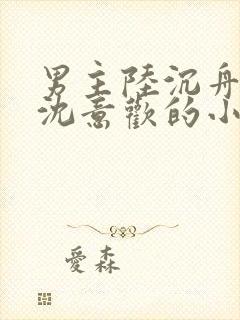 男主陸沉舟
沈意歡的小
愛森